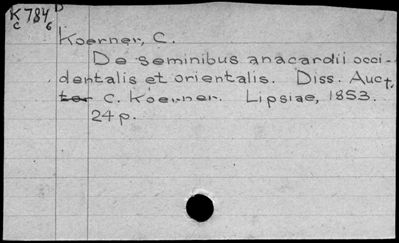 K784 D
c 6
Koerner, C.
De seminibus anacardii occi-
dentalis et orientalis. Diss. Auct.
ter C. Koerner. Lipsiae, 1853.
24p.